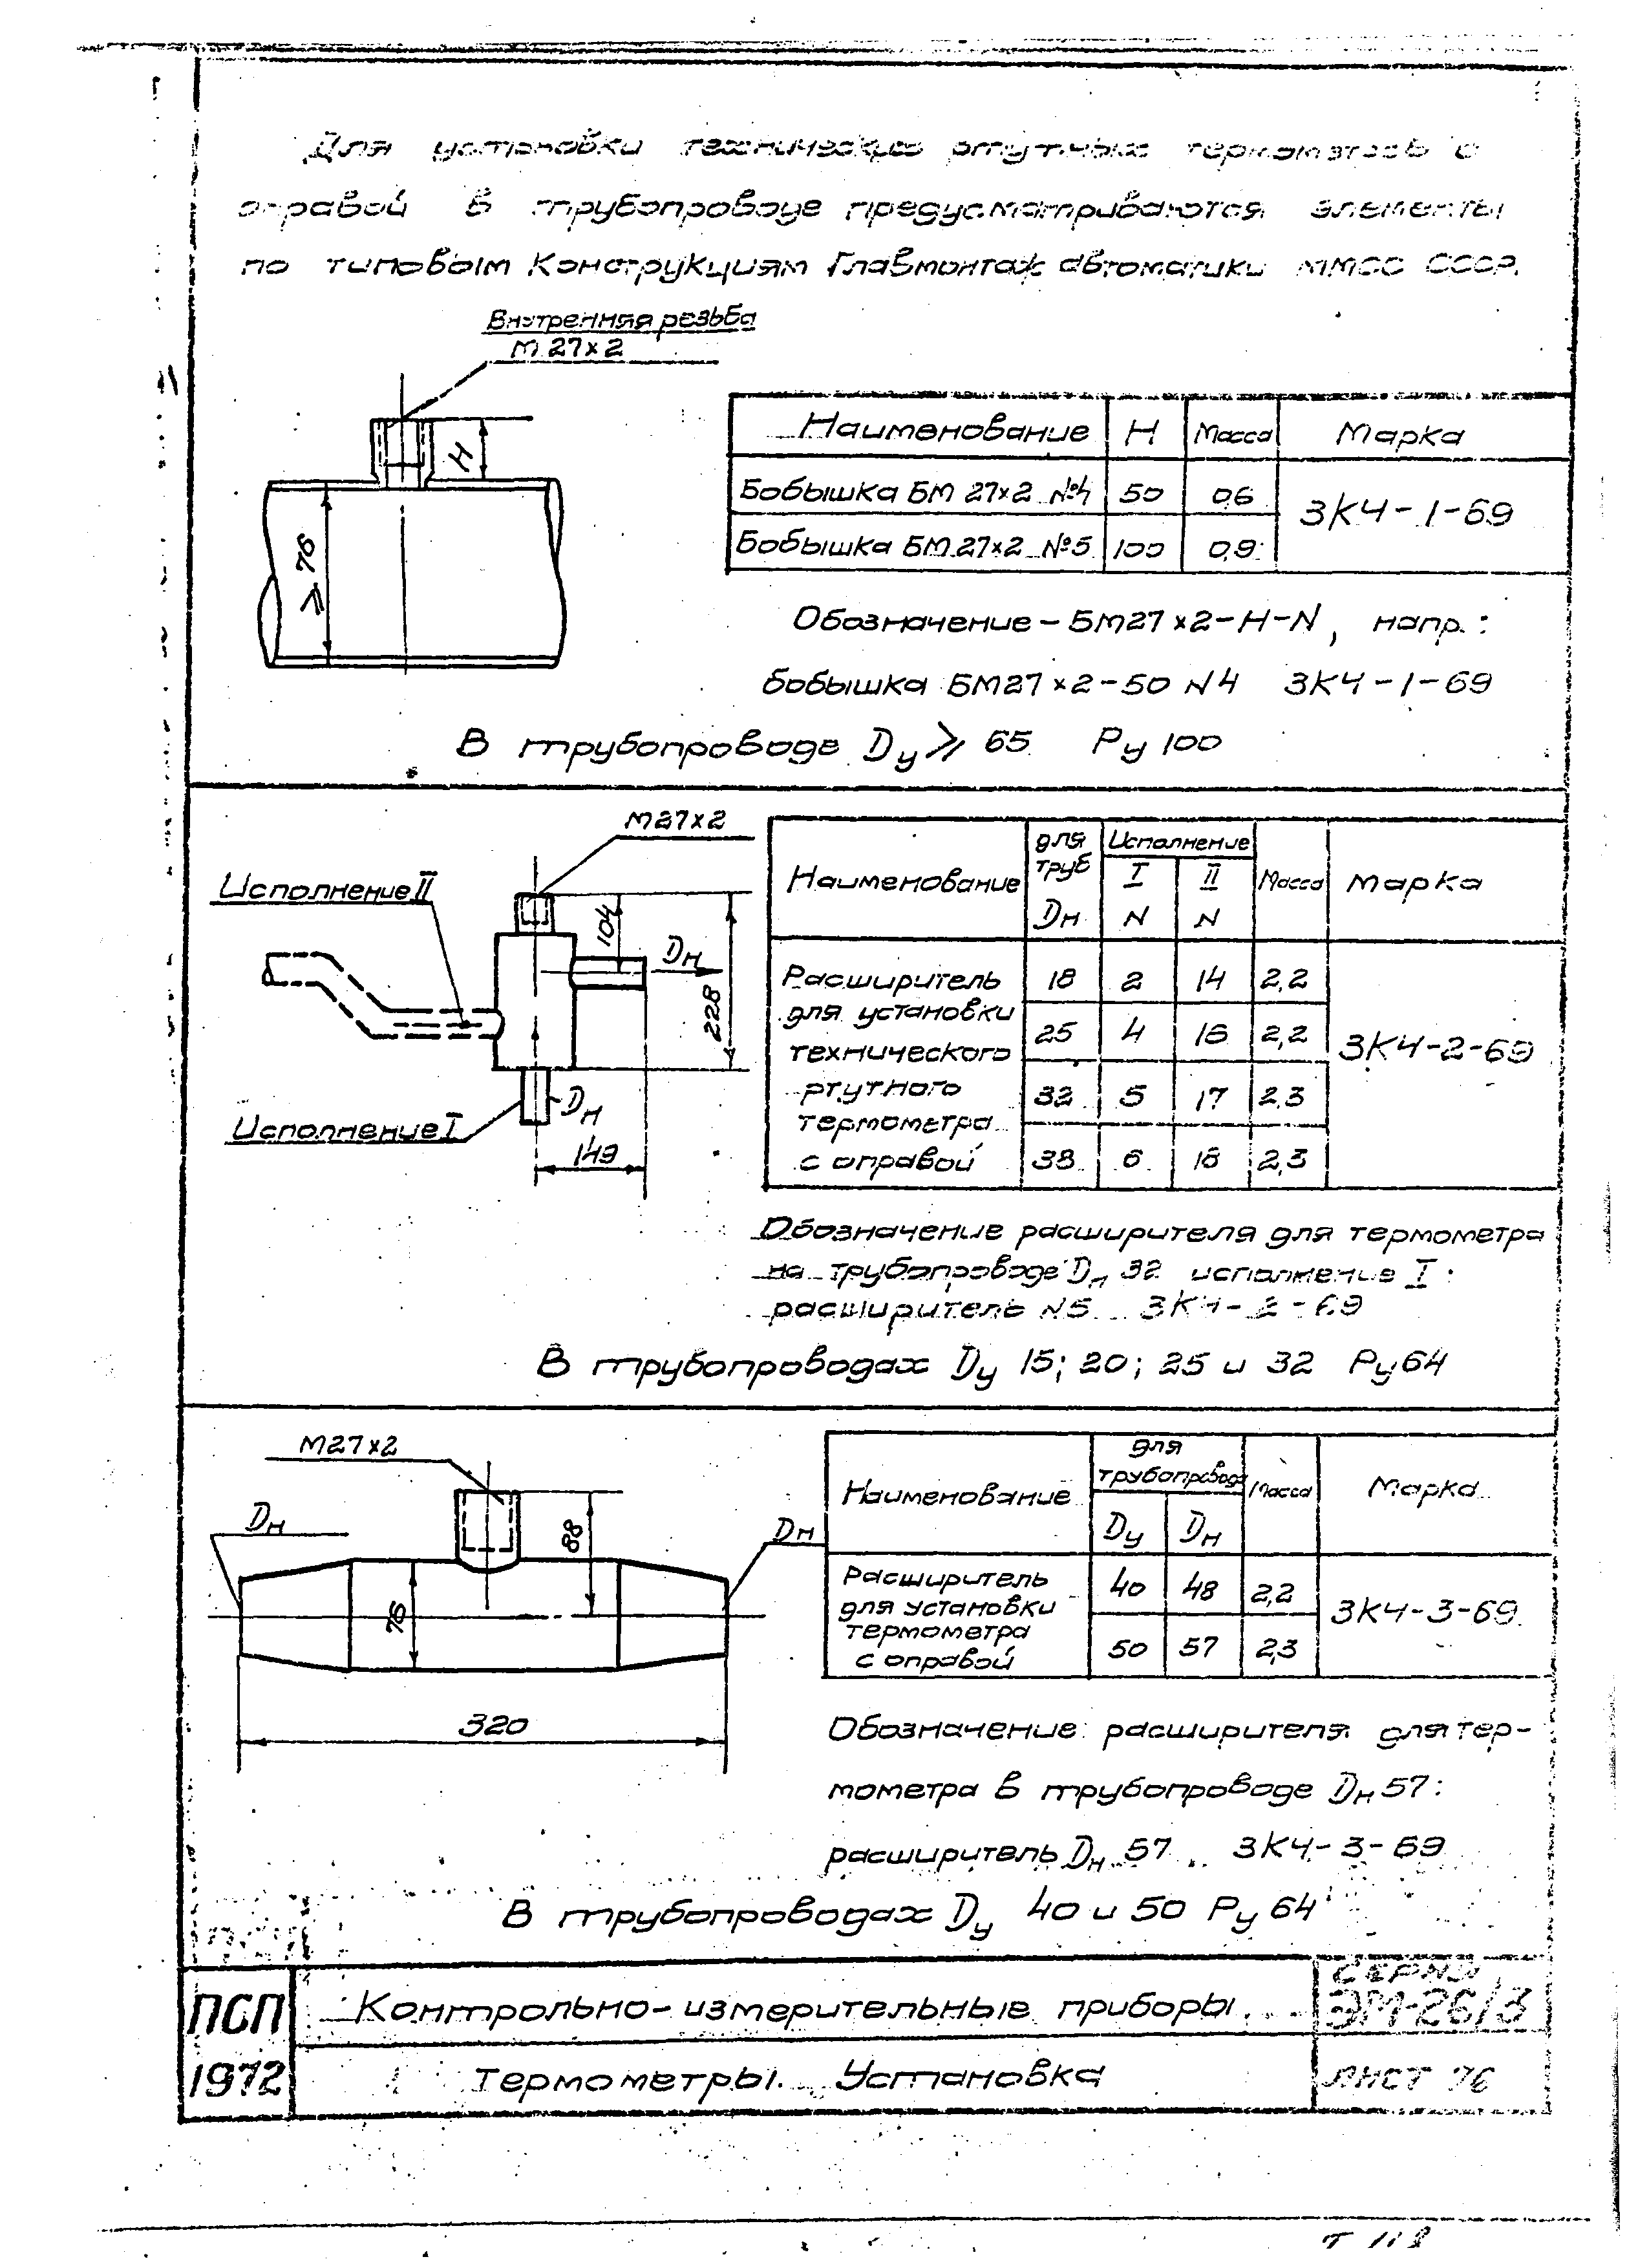 Для установки технических ртутных термометров с
оправой в трубопроводе предусматриваются элементы
по типовым Конструкциям Главмонтаж автоматики ММСС СССР.
Внутренняя резьба
М 27×2
H
⩾ 76
Наименование H Масса Марка
Бобышка БМ 27×2 №4 50 0,6 ЗКЧ-1-69
Бобышка БМ 27×2 №5 100 0,9
Обозначение - БМ27×2-H-N, напр.:
бобышка БМ27×2-50 N4 ЗКЧ-1-69
В трубопроводе Dу ⩾ 65 Pу 100
М27×2
Исполнение II
104
Dн
228
Исполнение I
Dн
149
Наименование для труб Dн Исполнение I N II N Масса Марка
Расширитель для установки технического ртутного термометра с оправой
18 2 14 2,2
25 4 16 2,2
32 5 17 2,3
38 6 18 2,3
ЗКЧ-2-69
Обозначение расширителя для термометра
на трубопроводе Dн 32 исполнение I:
расширитель N5 ЗКЧ-2-69
В трубопроводах Dу 15; 20; 25 и 32 Pу 64
М27×2
Dн
88
Dн
76
320
Наименование для трубопровода Dу Dн Масса Марка
Расширитель для установки термометра с оправой
40 48 2,2
50 57 2,3
ЗКЧ-3-69
Обозначение расширителя для тер-
мометра в трубопроводе Dн 57:
расширитель Dн 57 ЗКЧ-3-69
В трубопроводах Dу 40 и 50 Pу 64
ПСП
1972
Контрольно-измерительные приборы.
Термометры. Установка
СЕРИЯ
ЭМ-26/3
ЛИСТ 76